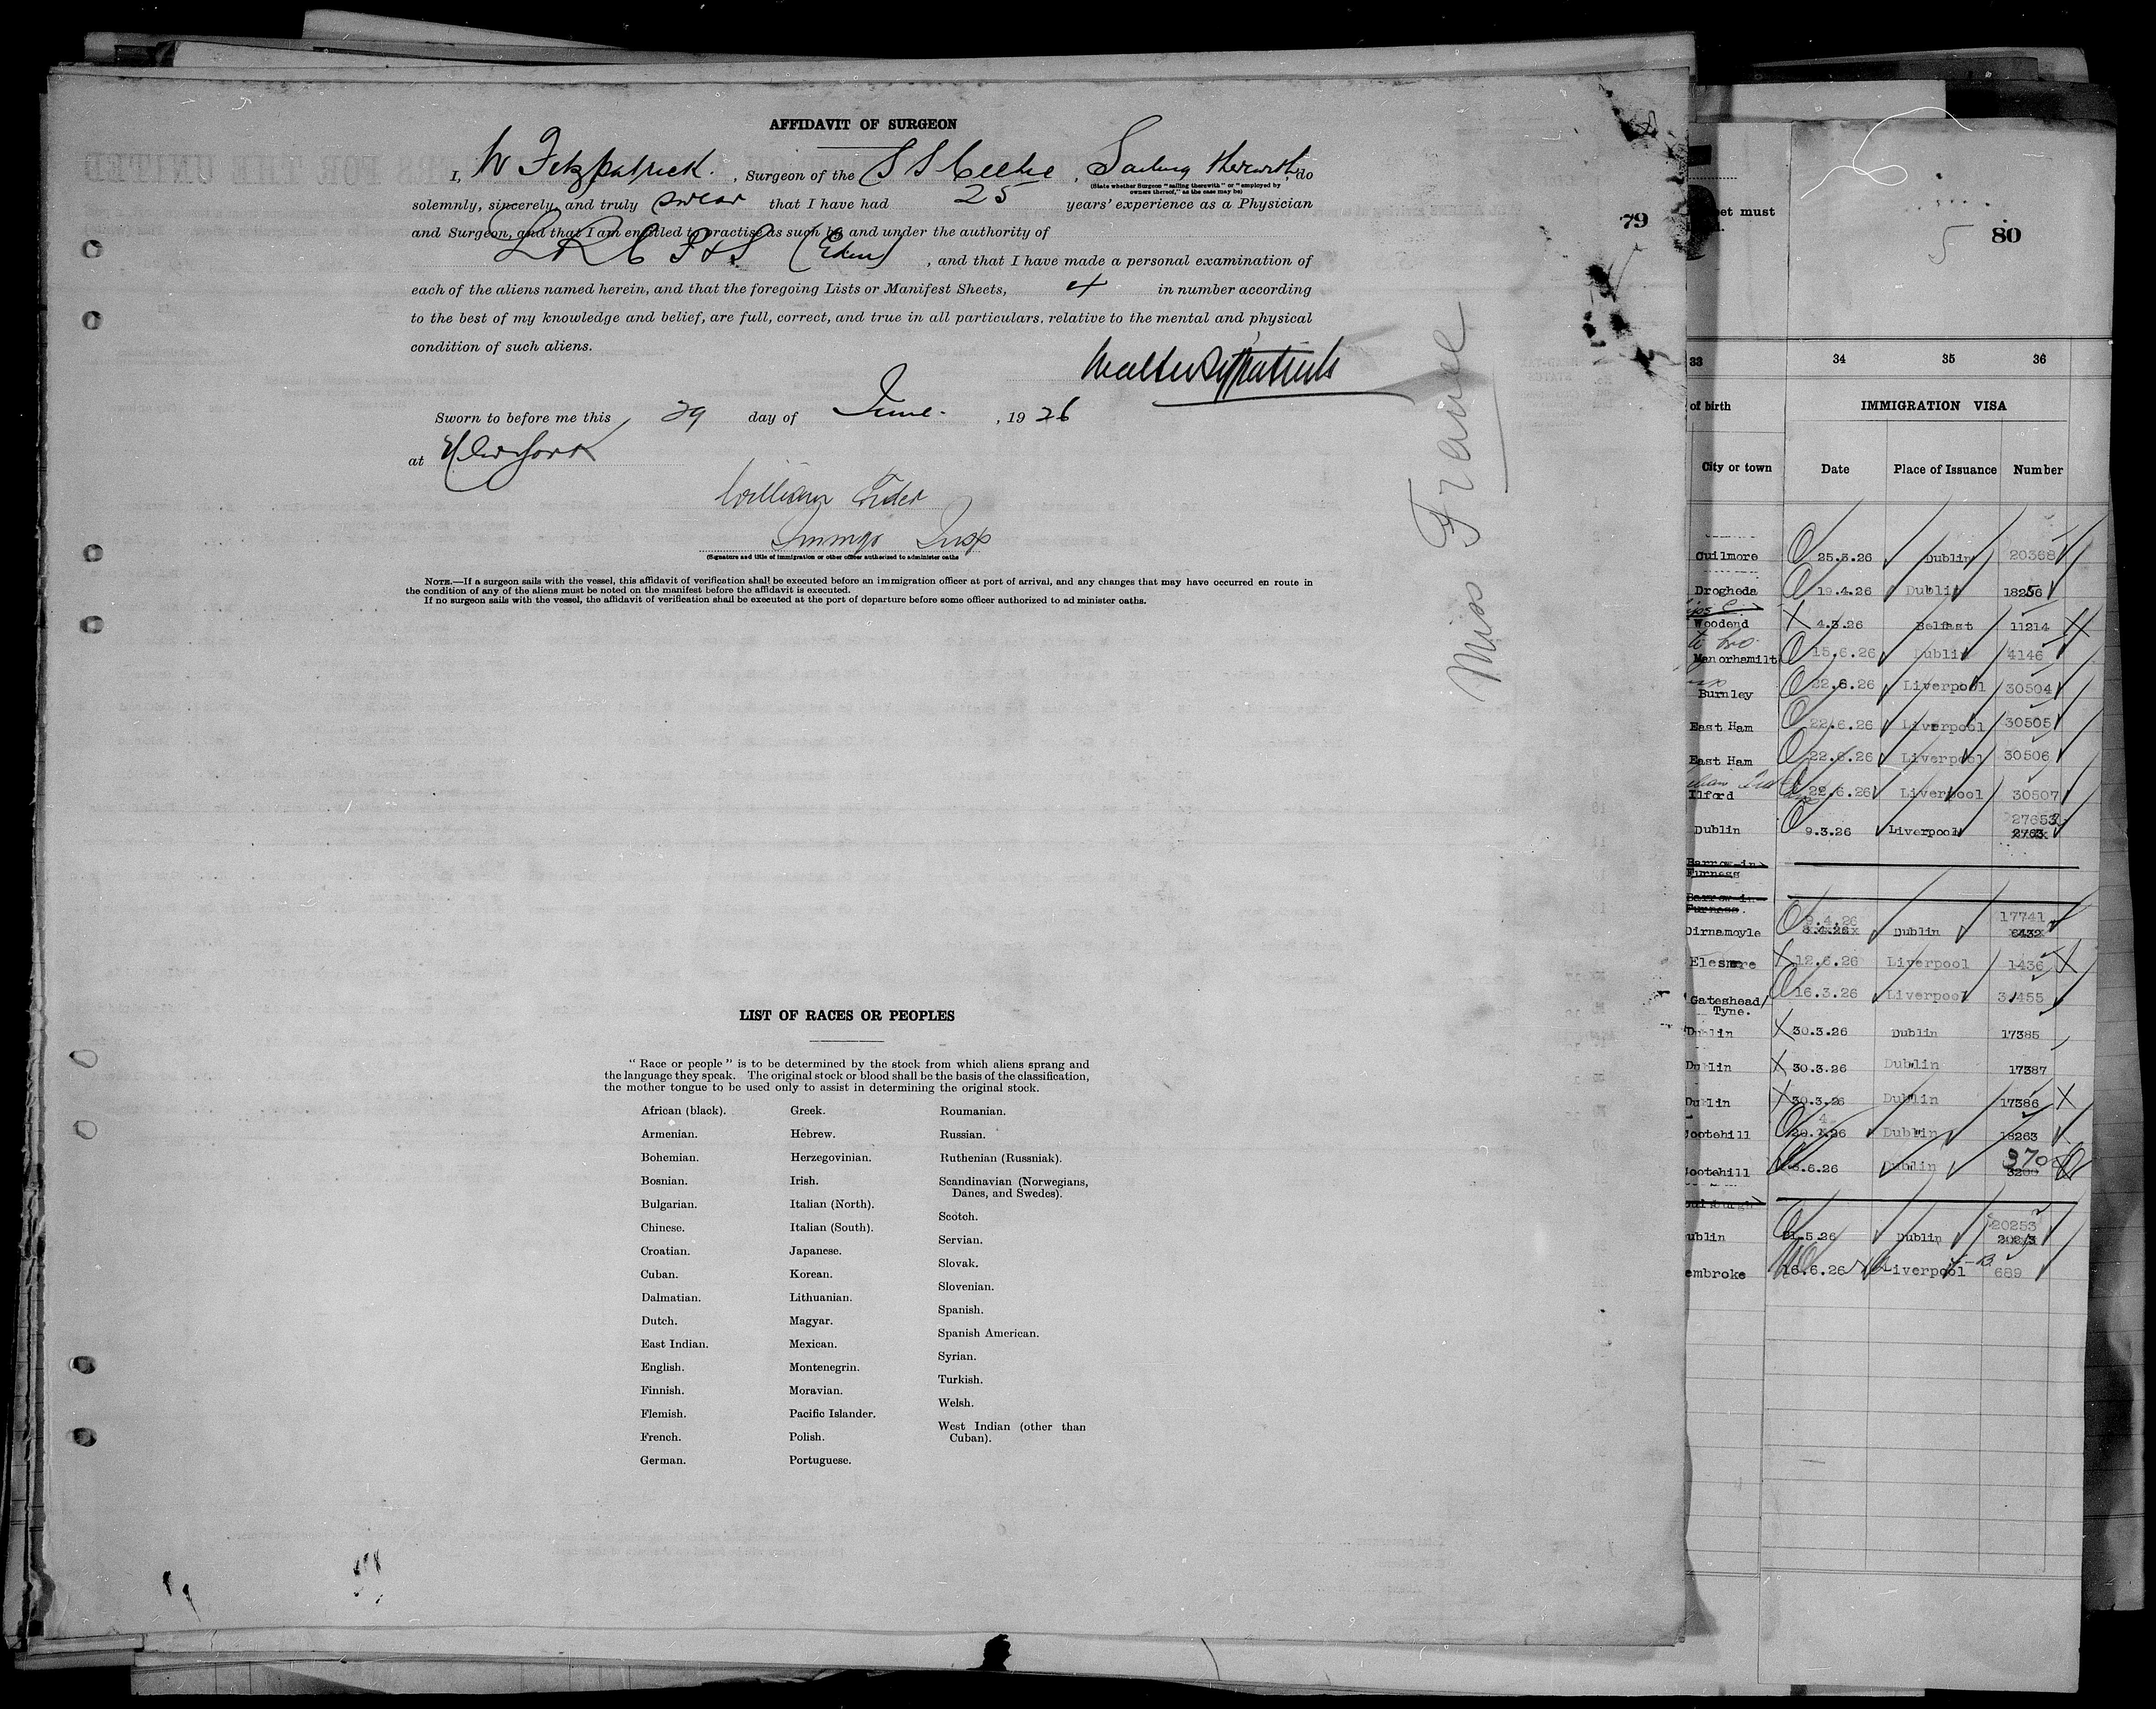 AFFIDAVIT OF SURGEON
I, W Fitzpatrick. , Surgeon of the S S Celtic , Sailing therewith, do
(State whether Surgeon "sailing therewith" or "employed by
owners thereof," as the case may be)
solemnly, sincerely, and truly swear that I have had 25 years' experience as a Physician
and Surgeon, and that I am entitled to practise as such by and under the authority of
L R C P & S (Edin) , and that I have made a personal examination of
each of the aliens named herein, and that the foregoing Lists or Manifest Sheets, 4 in number according
to the best of my knowledge and belief, are full, correct, and true in all particulars, relative to the mental and physical
condition of such aliens.
Walter Fitzpatrick
Sworn to before me this 29 day of June , 19 26
at New York
William
Immigr Insp
(Signature and title of immigration or other officer authorized to administer oaths
NOTE.—If a surgeon sails with the vessel, this affidavit of verification shall be executed before an immigration officer at port of arrival, and any changes that may have occurred en route in
the condition of any of the aliens must be noted on the manifest before the affidavit is executed.
If no surgeon sails with the vessel, the affidavit of verification shall be executed at the port of departure before some officer authorized to administer oaths.
Miss France
79
LIST OF RACES OR PEOPLES
"Race or people" is to be determined by the stock from which aliens sprang and
the language they speak. The original stock or blood shall be the basis of the classification,
the mother tongue to be used only to assist in determining the original stock.
African (black).
Armenian.
Bohemian.
Bosnian.
Bulgarian.
Chinese.
Croatian.
Cuban.
Dalmatian.
Dutch.
East Indian.
English.
Finnish.
Flemish.
French.
German.
Greek.
Hebrew.
Herzegovinian.
Irish.
Italian (North).
Italian (South).
Japanese.
Korean.
Lithuanian.
Magyar.
Mexican.
Montenegrin.
Moravian.
Pacific Islander.
Polish.
Portuguese.
Roumanian.
Russian.
Ruthenian (Russniak).
Scandinavian (Norwegians,
Danes, and Swedes).
Scotch.
Servian.
Slovak.
Slovenian.
Spanish.
Spanish American.
Syrian.
Turkish.
Welsh.
West Indian (other than
Cuban).
must
5 80
33 34 35 36
of birth IMMIGRATION VISA
City or town Date Place of Issuance Number
Cuilmore 25.3.26 Dublin 20368
Drogheda 19.4.26 Dublin 18256
Woodend 4.3.26 Belfast 11214
Manorhamilt 15.6.26 Dublin 4146
Burnley 22.6.26 Liverpool 30504
East Ham 22.6.26 Liverpool 30505
East Ham 22.6.26 Liverpool 30506
Ilford 22.6.26 Liverpool 30507
Dublin 9.3.26 Liverpool 27653
Barrow-in-
Furness
Barrow-in-
Furness.
Dirnamoyle 8.4.26 Dublin 17741
6432
Elesmere 12.6.26 Liverpool 1436
Gateshead/ 16.3.26 Liverpool 31455
Tyne.
Dublin 30.3.26 Dublin 17385
Dublin 30.3.26 Dublin 17387
Dublin 30.3.26 Dublin 17386
ootehill 20.4.26 Dublin 18263
ootehill 6.26 Dublin 370
ublin 21.5.26 Dublin 20253
embroke 16.6.26 Liverpool 689